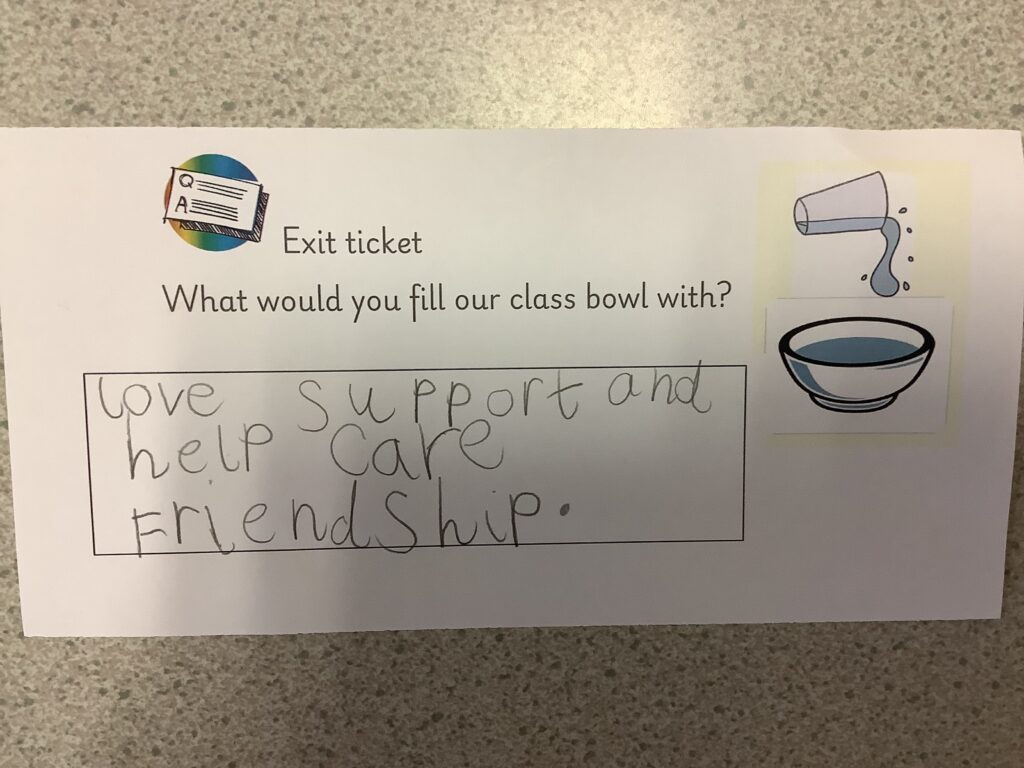 Q
A
Exit ticket
What would you fill our class bowl with?
love support and
help care
Friendship.